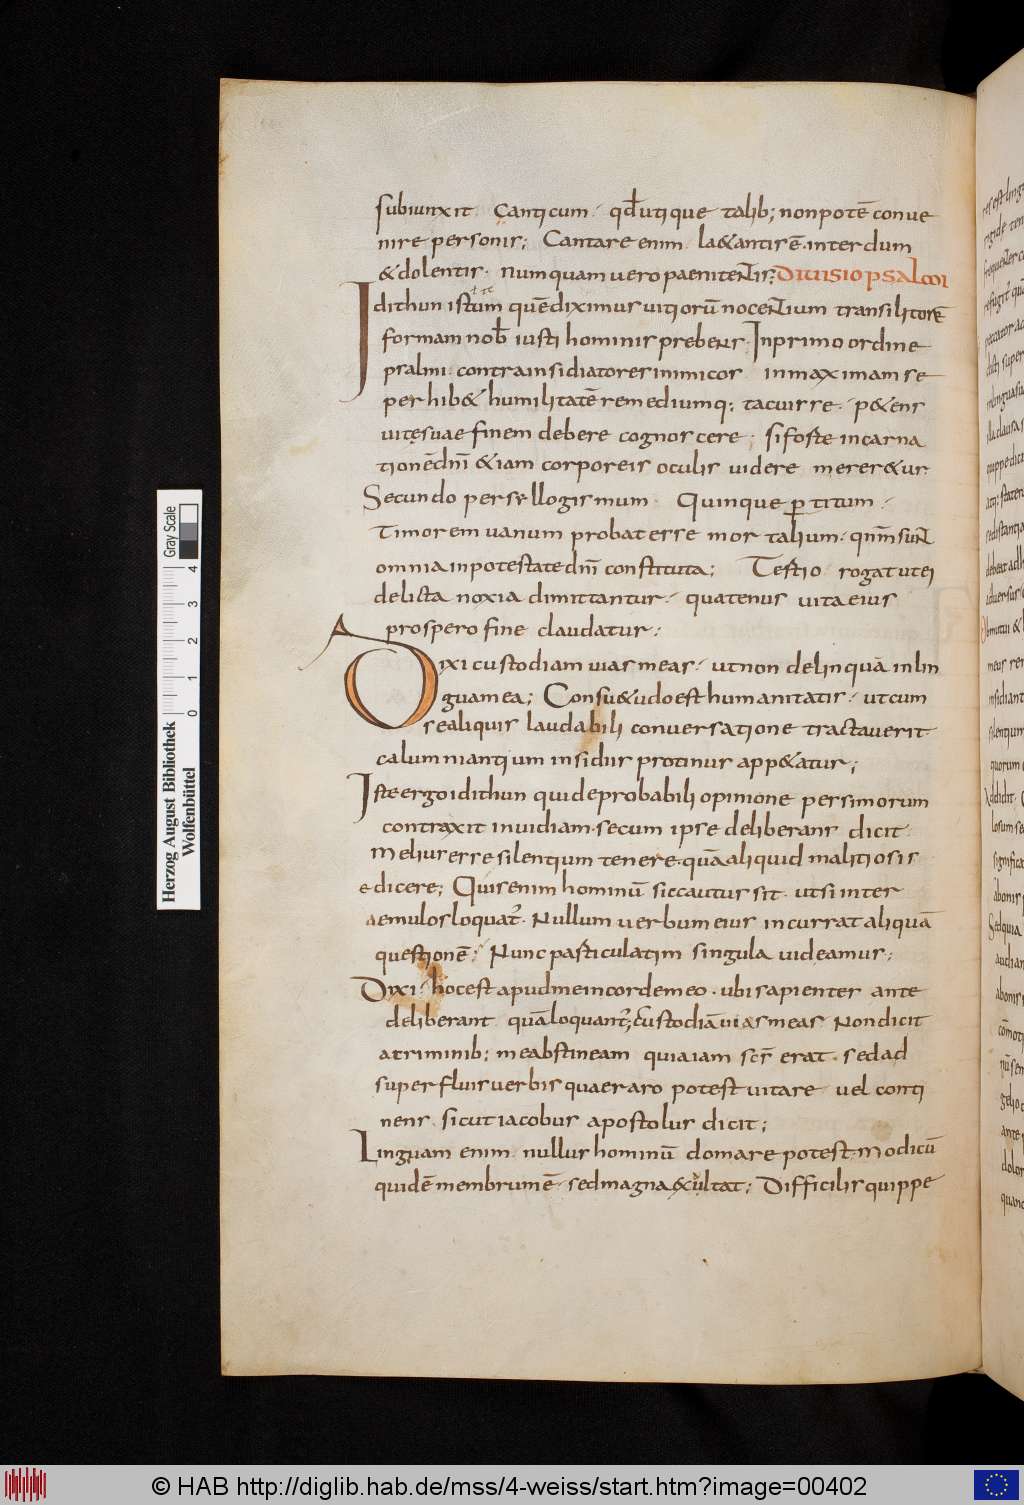 subiunxit canticum · qđ utique talib; non potē conue
nire personis; Cantare enim l&antis ē · interdum
& dolentis · numquam uero paenitentis; DIUISIO PSALMI
Idithun istum quē diximus uitiorū nocentium transilitorē
formam nob̄ iusti hominis prebens · In primo ordine
psalmi contra insidiatores inimicos in maximam se
perhib& humilitatē remediumq; tacuisse · p&ens
uitę suae finem debere cognoscere; si foste incarna
tionē dn̄i & iam corporeis oculis uidere merer&ur
Secundo per sellogismum Quinque ꝑtitum ·
Timorem uanum probat esse mortalium · qnm̄ sunt
omnia in potestate dn̄i constituta; Testio rogat ut ei
delicta noxia dimittantur · quatenus uita eius
prospero fine claudatur;
Dixi custodiam uias meas · ut non delinquā in lin
gua mea; Consu&udo est humanitatis · ut cum
se aliquis laudabili conuersatione tractauerit
calumniantium insidiis protinus app&atur;
Iste ergo idithun qui de probabili opinione persimorum
contraxit inuidiam · secum ipse deliberans dicit
melius esse silentium tenere · quā aliquid malitiosis
edicere; Quis enim hominū sic cautus sit · ut si inter
aemulos loquat̄ · Nullum uerbum eius incurrat aliquā
questionē; Nunc pasticulatim singula uideamus;
Dixi · hoc est apud me in corde meo · ubi sapienter ante
deliberant quā loquant̄; custodiā uias meas Non dicit
a criminib; me abstineam quia iam scs̄ erat · sed ad
superfluis uerbis quaeraro potest uitare uel conti
nens sicut iacobus apostolus dicit;
Linguam enim nullus hominū domare potest · Modicū
quidē membrum ē · sed magna exultat; Difficilis quippe
Herzog August Bibliothek
Wolfenbüttel
0 1 2 3 4
Gray Scale
© HAB http://diglib.hab.de/mss/4-weiss/start.htm?image=00402